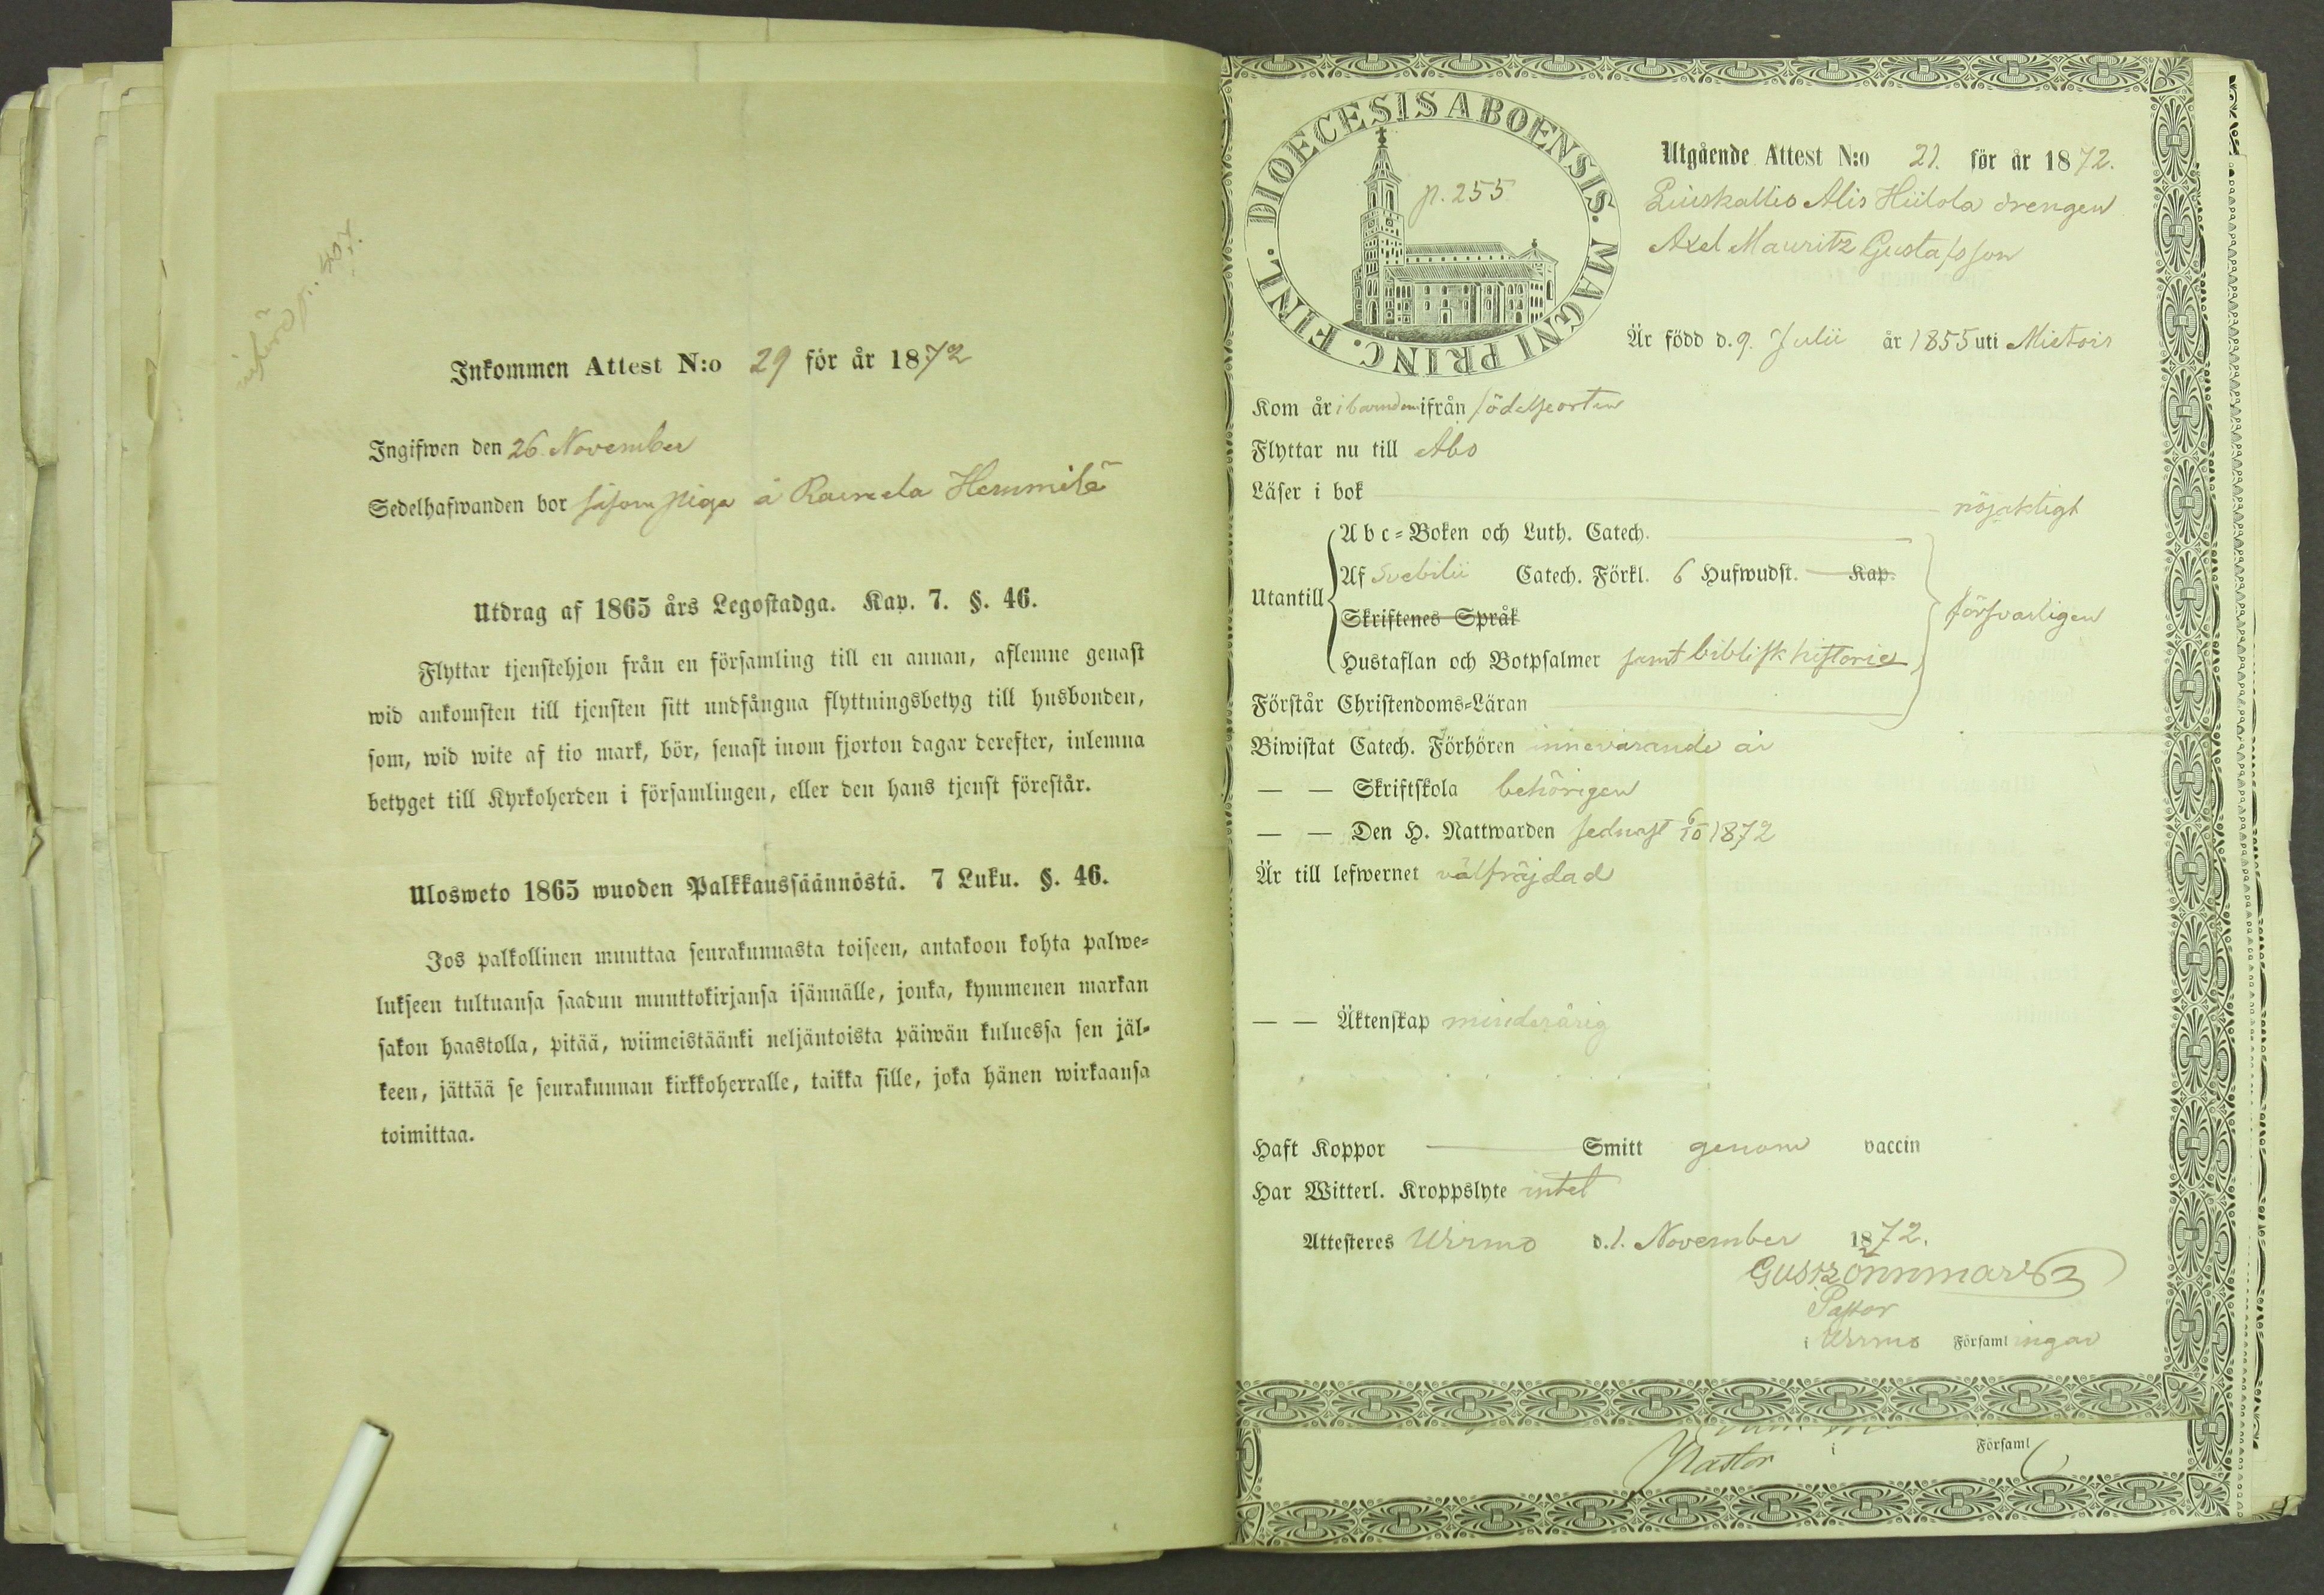 p. 407.
Inkommen Attest N:o 29 för år 1872
Ingifwen den 26 November
Sedelhafwanden bor såsom piga å Raimela Hemmilä
Utdrag af 1865 års Legostadga. Kap. 7. §. 46.
Flyttar tjenstehjon från en församling till en annan, aflemne genast
wid ankomsten till tjensten sitt undfångna flyttningsbetyg till husbonden,
som, wid wite af tio mark, bör, senast inom fjorton dagar derefter, inlemna
betyget till Kyrkoherden i församlingen, eller den hans tjenst förestår.
Ulosweto 1865 wuoden Palkkaussäännöstä. 7 Luku. §. 46.
Jos palkollinen muuttaa seurakunnasta toiseen, antakoon kohta palwe-
lukseen tultuansa saadun muuttokirjansa isännälle, jonka, kymmenen markan
sakon haastolla, pitää, wiimeistäänki neljäntoista päiwän kuluessa sen jäl-
keen, jättää se seurakunnan kirkkoherralle, taikka sille, joka hänen wirkaansa
toimittaa.
DIOECESIS ABOENSIS. MAGNI PRINC. FINL.
p. 255
Utgående Attest N:o 21. för år 1872.
Alis Hiilola drengen
Axel Mauritz Gustafsson
Är född d. 9. Julii år 1855 uti Mietois
Kom år i barndom ifrån födelseorten
Flyttar nu till Åbo
Läser i bok nöjaktigt
Utantill
Abc-Boken och Luth. Catech.
Af Svebilii Catech. Förkl. 6 Hufwudst. Kap.
Skriftenes Språk
försvarligen
Hustaflan och Botpsalmer samt biblisk historie
Förstår Christendoms-Läran
Biwistat Catech. Förhören innevarande år
— — Skriftskola behörigen
— — Den H. Nattwarden sednast 6/10 1872
Är till lefwernet välfräjdad
— — Äktenskap minderårig
Haft Koppor Smitt genom vaccin
Har Witterl. Kroppslyte intet
Attesteres Wirmo d. 1. November 1872.
Pastor
i Wirmo Församlingar
Pastor i Församl